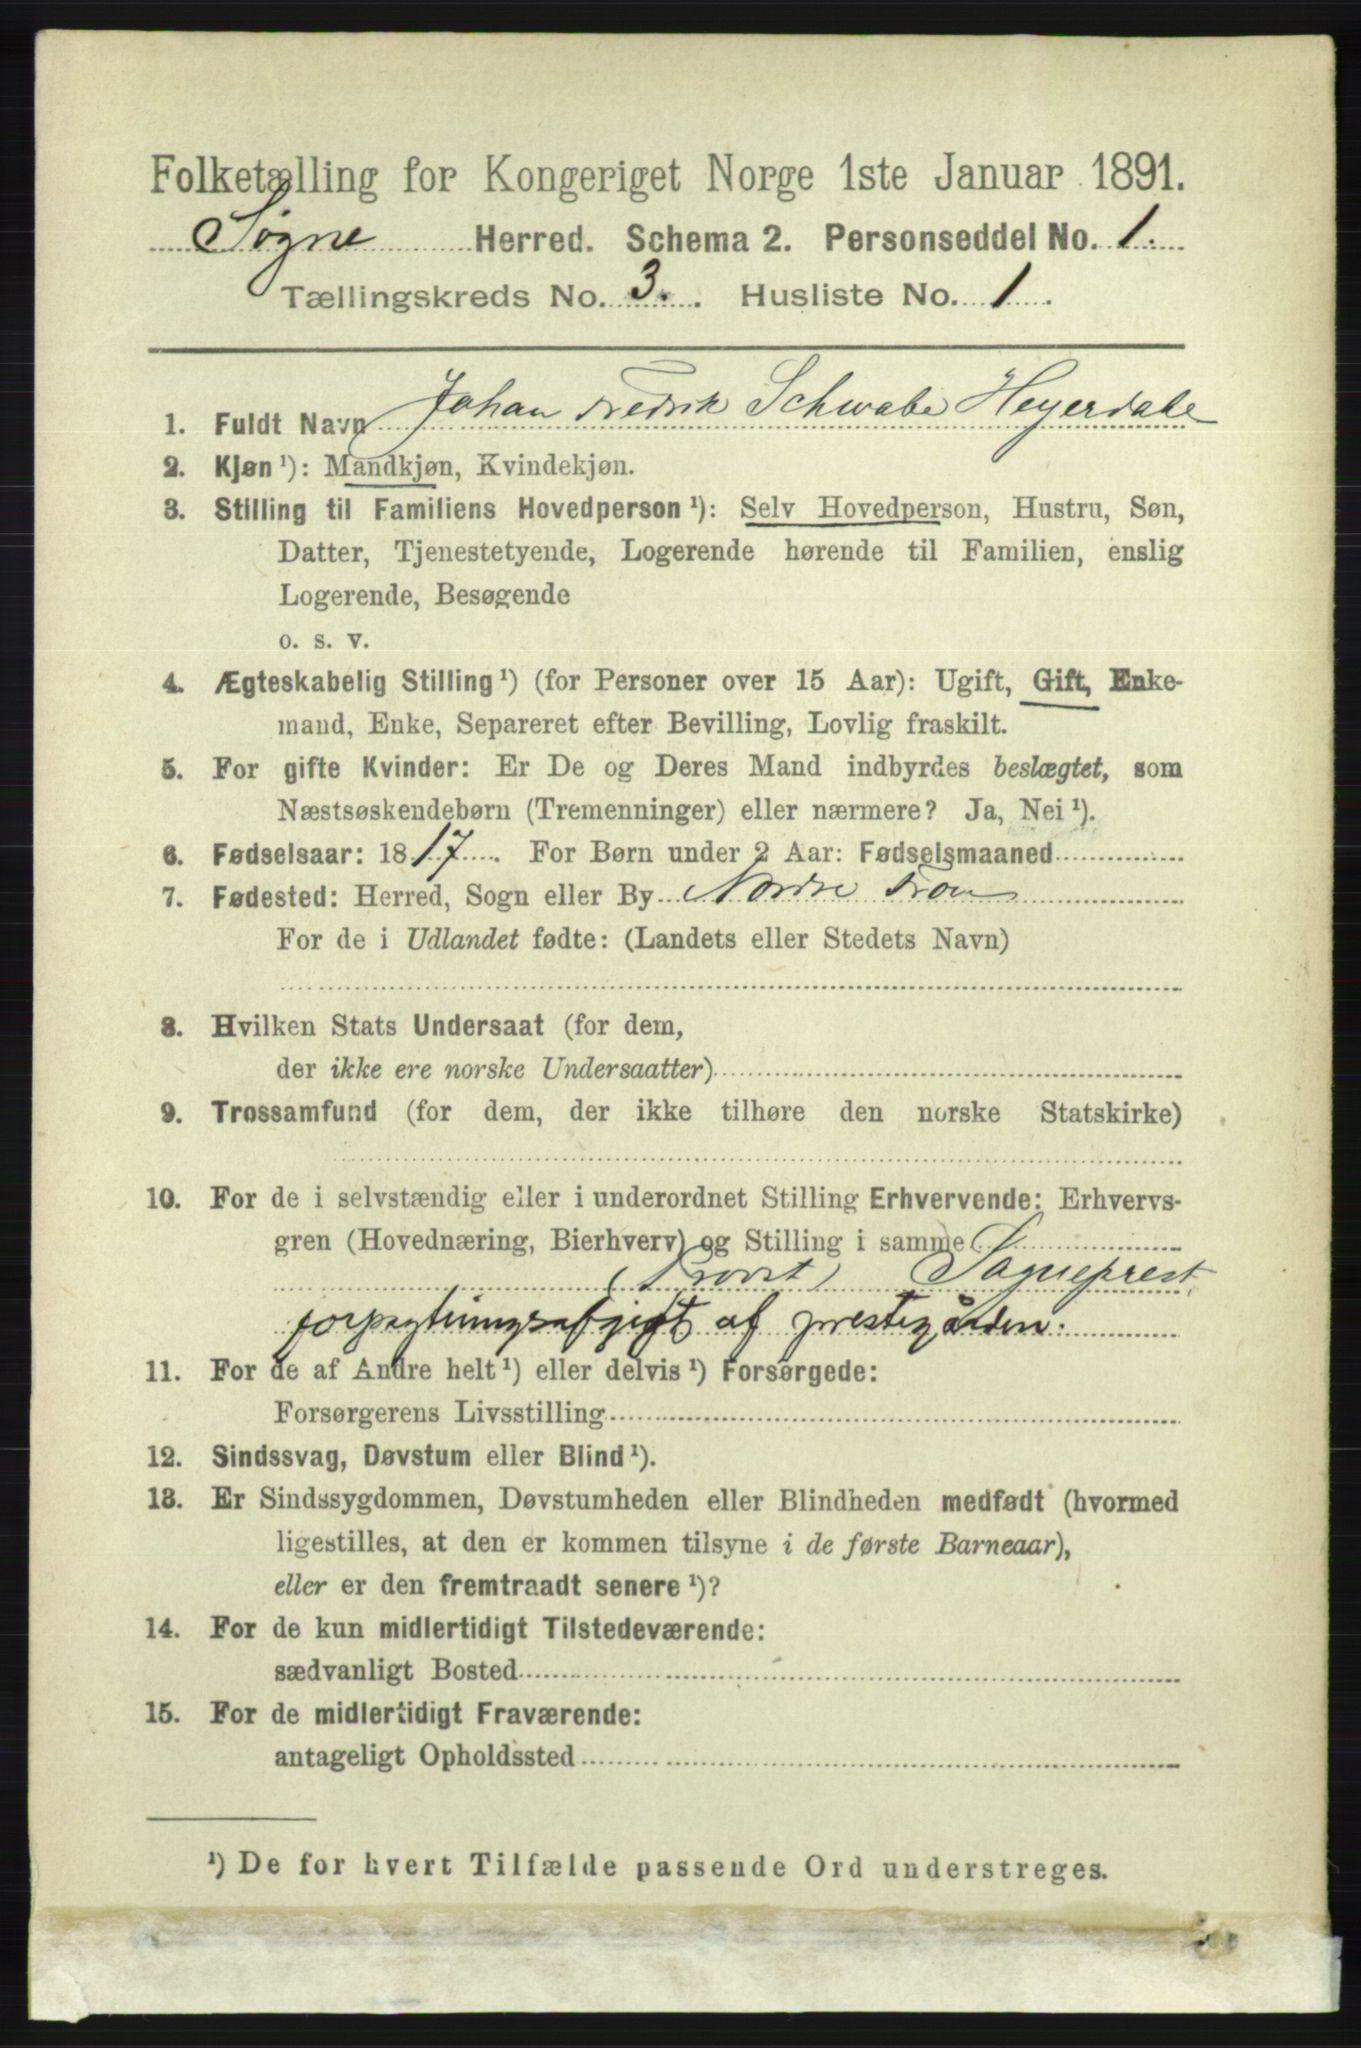 Folketælling for Kongeriget Norge 1ste Januar 1891.
Søgne Herred. Schema 2. Personseddel No. 1.
Tællingskreds No. 3. Husliste No. 1.
1. Fuldt Navn Johan Fredrik Schwabe Heyerdahl
2. Kjøn ¹): Mandkjøn, Kvindekjøn.
3. Stilling til Familiens Hovedperson ¹): Selv Hovedperson, Hustru, Søn,
Datter, Tjenestetyende, Logerende hørende til Familien, enslig
Logerende, Besøgende
o. s. v.
4. Ægteskabelig Stilling ¹) (for Personer over 15 Aar): Ugift, Gift, Enke-
mand, Enke, Separeret efter Bevilling, Lovlig fraskilt.
5. For gifte Kvinder: Er De og Deres Mand indbyrdes beslægtet, som
Næstsøskendebørn (Tremenninger) eller nærmere? Ja, Nei ¹).
6. Fødselsaar: 1817. For Børn under 2 Aar: Fødselsmaaned
7. Fødested: Herred, Sogn eller By Nordre Fron
For de i Udlandet fødte: (Landets eller Stedets Navn)
8. Hvilken Stats Undersaat (for dem,
der ikke ere norske Undersaatter)
9. Trossamfund (for dem, der ikke tilhøre den norske Statskirke)
10. For de i selvstændig eller i underordnet Stilling Erhvervende: Erhvervs-
gren (Hovednæring, Bierhverv) og Stilling i samme
(Provst) Sogneprest,
forpagtningsafgift af prestegården.
11. For de af Andre helt ¹) eller delvis ¹) Forsørgede:
Forsørgerens Livsstilling
12. Sindssvag, Døvstum eller Blind ¹).
13. Er Sindssygdommen, Døvstumheden eller Blindheden medfødt (hvormed
ligestilles, at den er kommen tilsyne i de første Barneaar),
eller er den fremtraadt senere ¹)?
14. For de kun midlertidigt Tilstedeværende:
sædvanligt Bosted
15. For de midlertidigt Fraværende:
antageligt Opholdssted
¹) De for hvert Tilfælde passende Ord understreges.